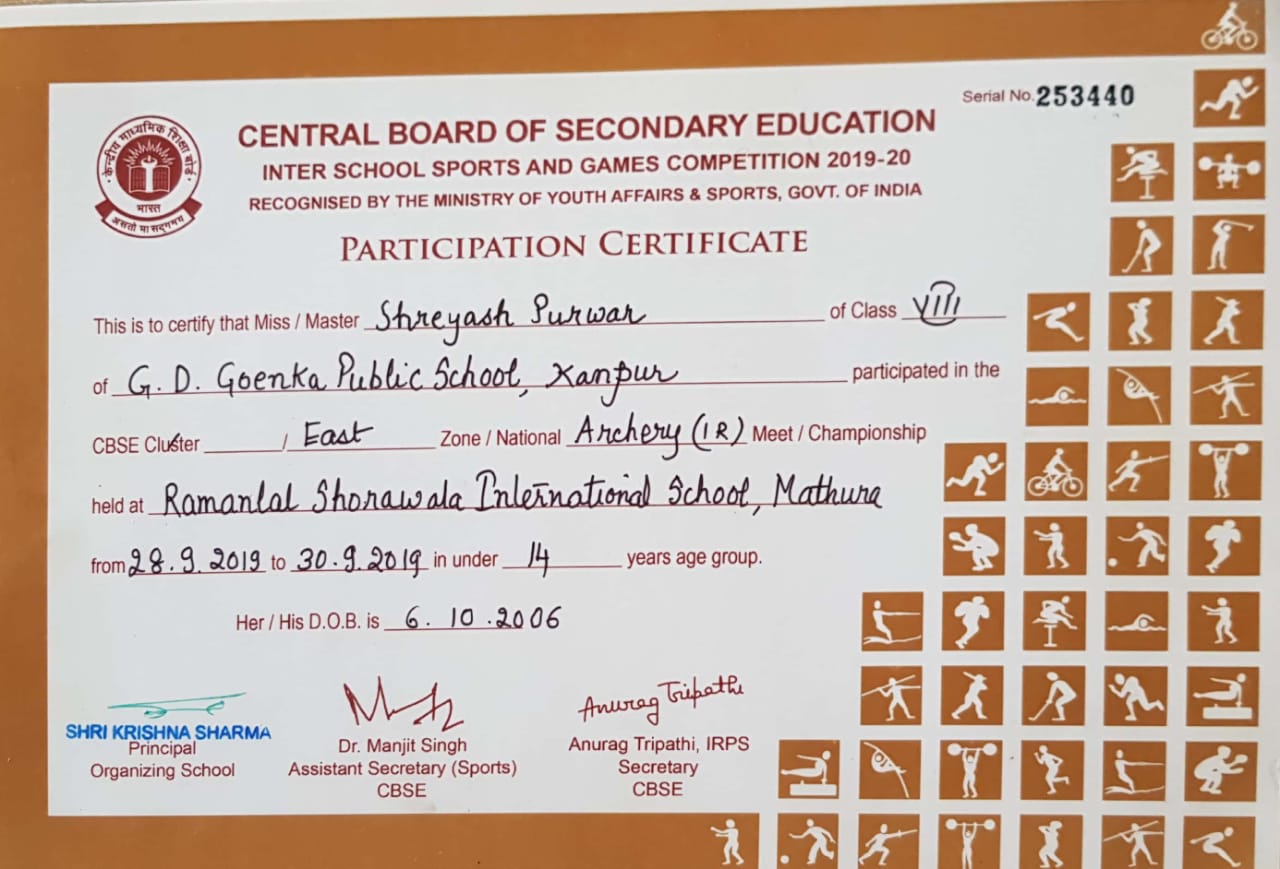 Serial No. 253440
केन्द्रीय माध्यमिक शिक्षा बोर्ड
भारत
असतो मा सद्गमय
CENTRAL BOARD OF SECONDARY EDUCATION
INTER SCHOOL SPORTS AND GAMES COMPETITION 2019-20
RECOGNISED BY THE MINISTRY OF YOUTH AFFAIRS & SPORTS, GOVT. OF INDIA
PARTICIPATION CERTIFICATE
This is to certify that Miss / Master Shreyash Purwar of Class VIII
of G. D. Goenka Public School, Kanpur participated in the
CBSE Cluster / East Zone / National Archery (IR) Meet / Championship
held at Ramanlal Shorawala International School, Mathura
from 28.9.2019 to 30.9.2019 in under 14 years age group.
Her / His D.O.B. is 6.10.2006
Anurag Tripathi
SHRI KRISHNA SHARMA
Principal
Organizing School
Dr. Manjit Singh
Assistant Secretary (Sports)
CBSE
Anurag Tripathi, IRPS
Secretary
CBSE